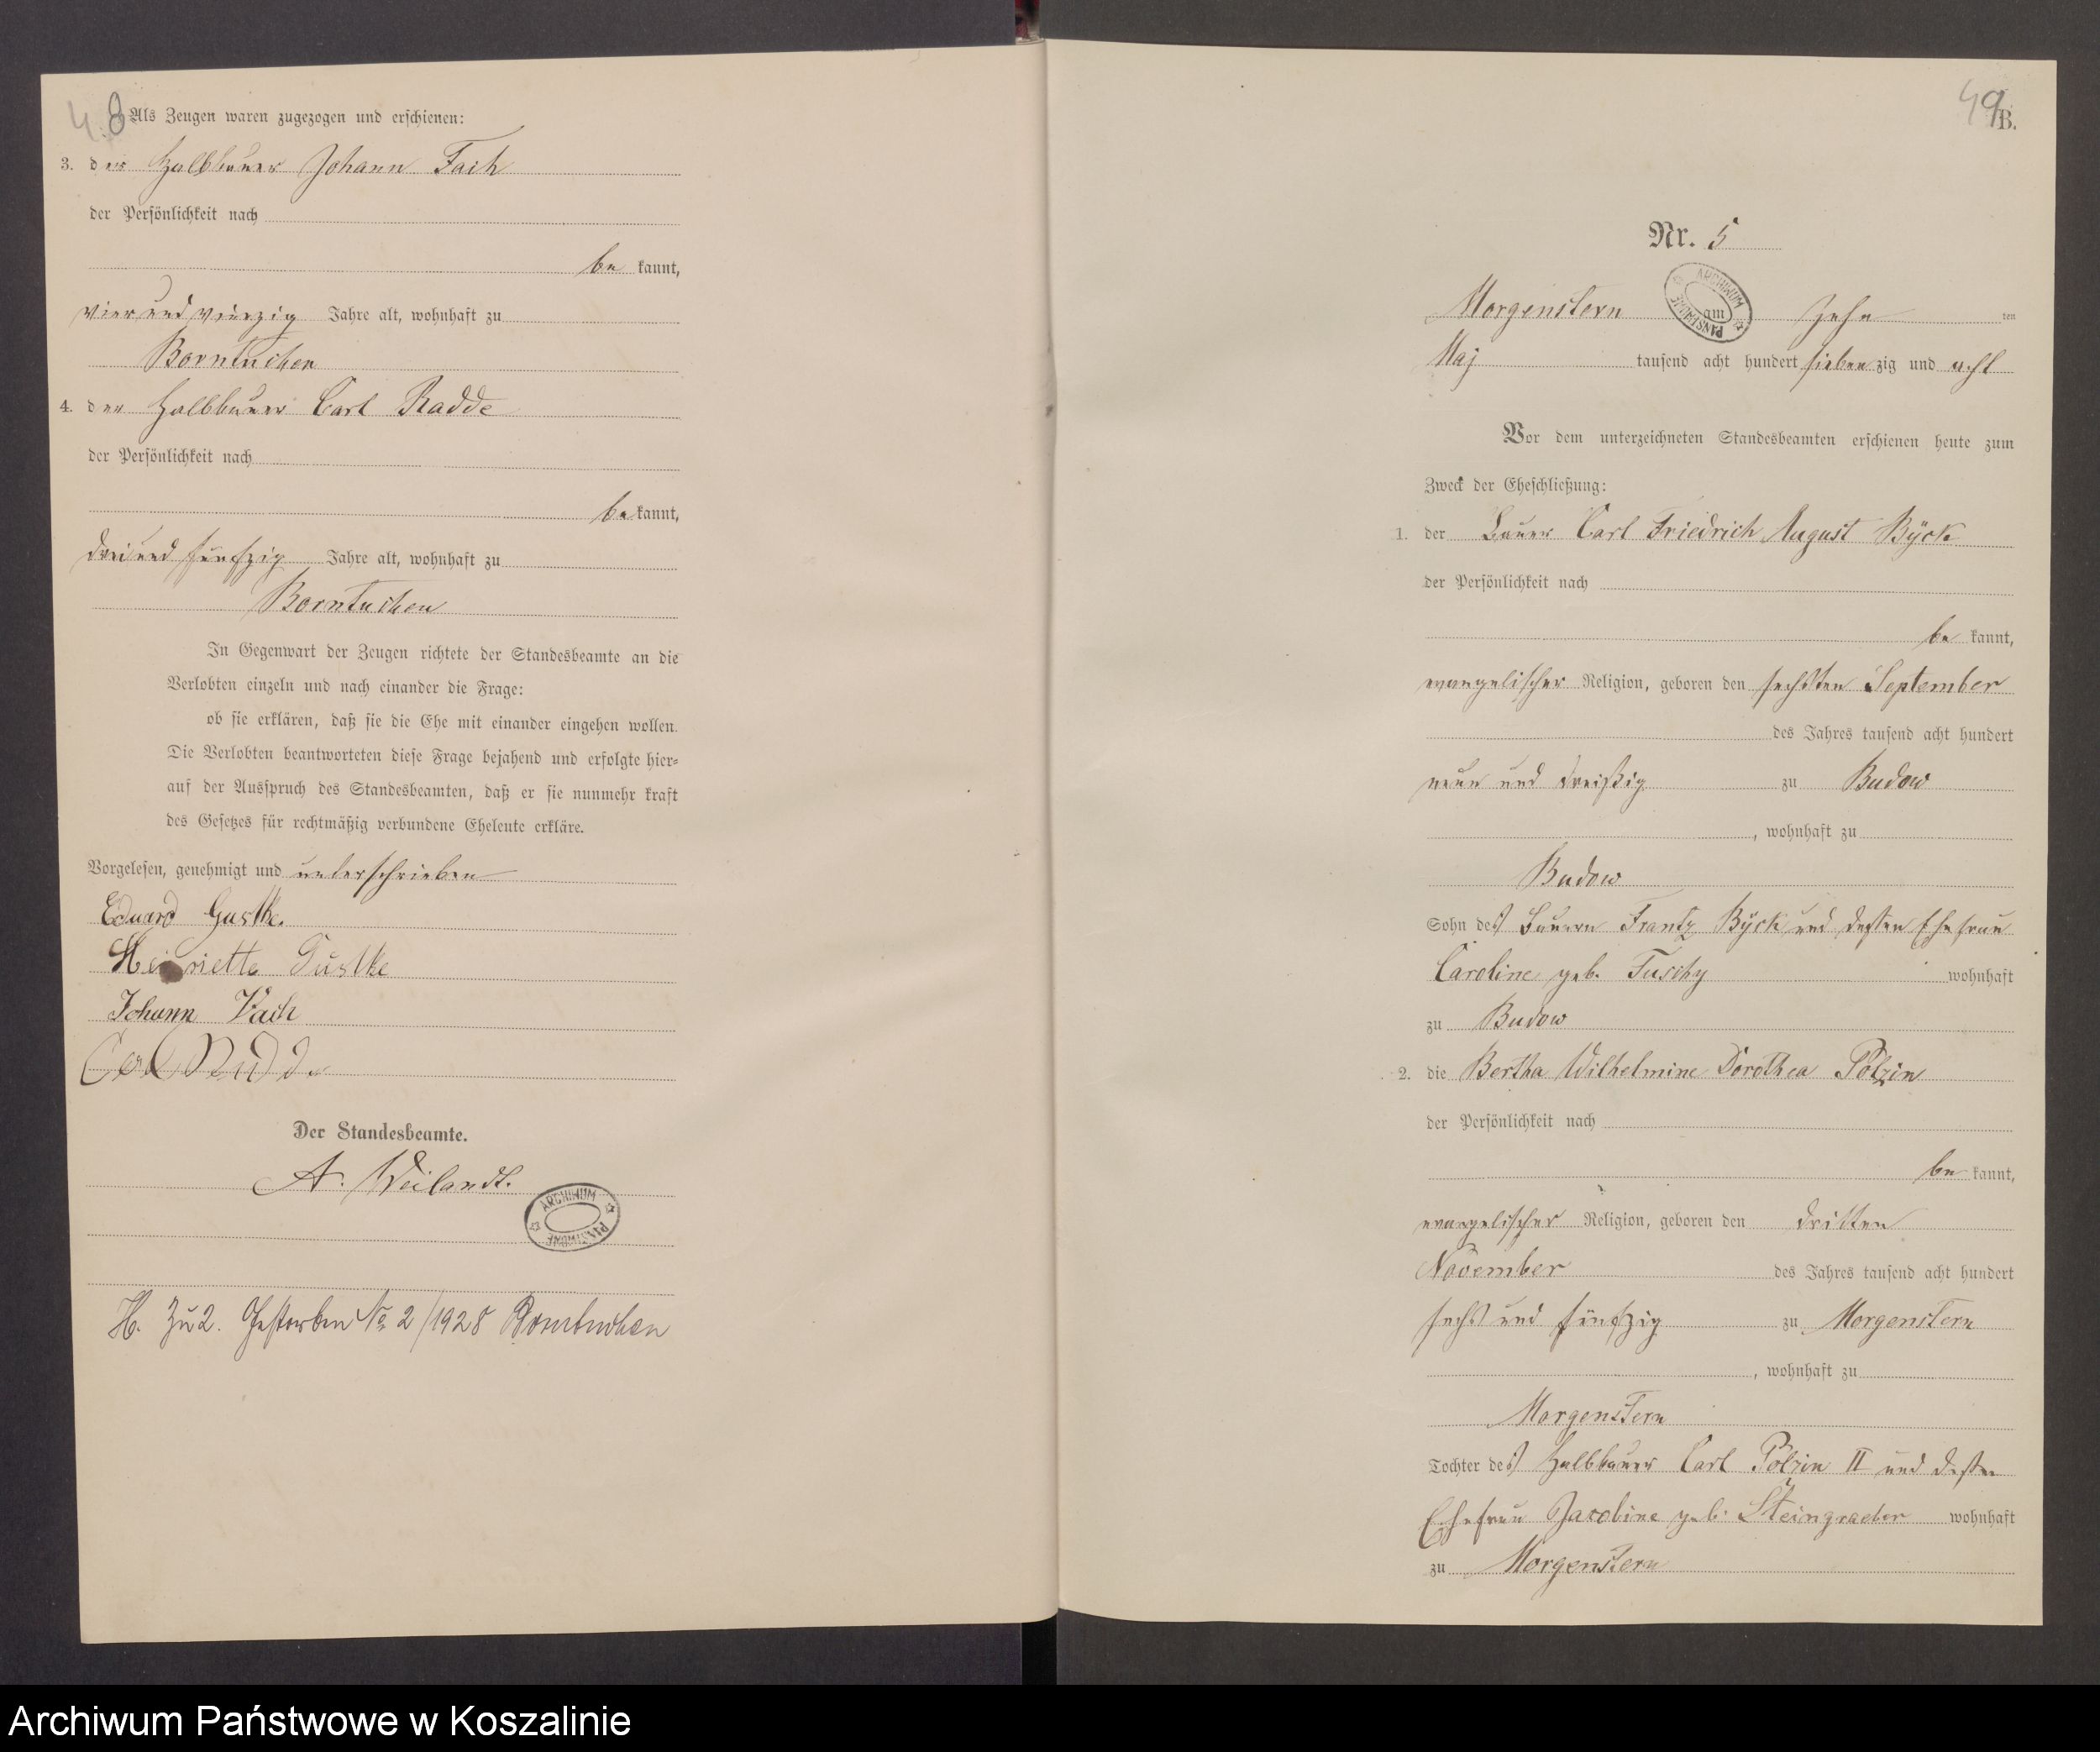 48
Als Zeugen waren zugezogen und erschienen:
3. der Halbbauer Johann Fach
der Persönlichkeit nach
be kannt,
vier und vierzig Jahre alt, wohnhaft zu
Borntuchen
4. der Halbbauer Carl Radde
der Persönlichkeit nach
be kannt,
drei und fünfzig Jahre alt, wohnhaft zu
Borntuchen
In Gegenwart der Zeugen richtete der Standesbeamte an die
Verlobten einzeln und nach einander die Frage:
ob sie erklären, daß sie die Ehe mit einander eingehen wollen.
Die Verlobten beantworteten diese Frage bejahend und erfolgte hier-
auf der Ausspruch des Standesbeamten, daß er sie nunmehr kraft
des Gesetzes für rechtmäßig verbundene Eheleute erkläre.
Vorgelesen, genehmigt und unterschrieben
Eduard Gustke.
Henriette Gustke
Johann Vach
Carl Radde
Der Standesbeamte.
A. Weilandt.
ARCHIWUM PAŃSTWOWE
H. Zu 2. Gestorben No 2/1928 Borntuchen
49
B.
Nr. 5
Morgenstern am zehn ten
ARCHIWUM PAŃSTWOWE
Maj tausend acht hundert sieben zig und acht
Vor dem unterzeichneten Standesbeamten erschienen heute zum
Zweck der Eheschließung:
1. der Bauer Carl Friedrich August Býck
der Persönlichkeit nach
be kannt,
evangelischer Religion, geboren den sechsten September
des Jahres tausend acht hundert
neun und dreißig zu Budow
, wohnhaft zu
Budow
Sohn des Bauern Frantz Býck und dessen Ehefrau
Caroline geb. Tuschy wohnhaft
zu Budow
2. die Bertha Wilhelmine Dorothea Pölzin
der Persönlichkeit nach
be kannt,
evangelischer Religion, geboren den dritten
November des Jahres tausend acht hundert
sechs und fünfzig zu Morgenstern
, wohnhaft zu
Morgenstern
Tochter des Halbbauer Carl Pölzin II und dessen
Ehefrau Jacobine geb. Steingraeber wohnhaft
zu Morgenstern
Archiwum Państwowe w Koszalinie